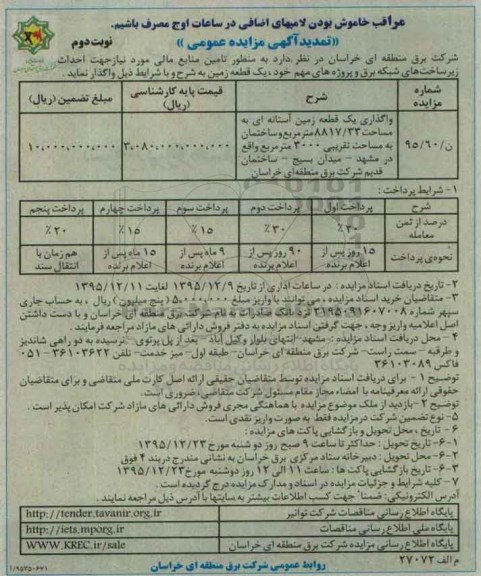 مراقب خاموش بودن لامپهای اضافی در ساعات اوج مصرف باشیم.
«تمدید آگهی مزایده عمومی»
نوبت دوم
شرکت برق منطقه ای خراسان در نظر دارد به منظور تامین منابع مالی مورد نیاز جهت احداث
زیرساخت‌های شبکه برق و پروژه های مهم خود، یک قطعه زمین به شرح و با شرایط ذیل واگذار نماید.
شماره مزایده
شرح
قیمت پایه کارشناسی (ریال)
مبلغ تضمین (ریال)
ن/۹۵/۶۰
واگذاری یک قطعه زمین آستانه ای به
مساحت ۸۸۱۷/۳۳ مترمربع و ساختمان
به مساحت تقریبی ۳۰۰۰ مترمربع واقع
در مشهد - میدان بسیج - ساختمان
قدیم شرکت برق منطقه‌ای خراسان
۳،۰۸۰،۰۰۰،۰۰۰،۰۰۰
۱۰،۰۰۰،۰۰۰،۰۰۰
۱- شرایط پرداخت:
شرح
پرداخت اول
پرداخت دوم
پرداخت سوم
پرداخت چهارم
پرداخت پنجم
درصد از ثمن معامله
٪۲۰
٪۳۰
٪۱۵
٪۱۵
٪۲۰
نحوه‌ی پرداخت
۱۵ روز پس از اعلام برنده
۹۰ روز پس از اعلام برنده
۹ ماه پس از اعلام برنده
۱۵ ماه پس از اعلام برنده
هم زمان با انتقال سند
۲- تاریخ دریافت اسناد مزایده: در ساعات اداری از تاریخ ۱۳۹۵/۱۲/۹ لغایت ۱۳۹۵/۱۲/۱۱
۳- متقاضیان خرید اسناد مزایده، می توانند با واریز مبلغ ۵،۰۰۰،۰۰۰ (پنج میلیون) ریال، به حساب جاری
سپهر شماره ۲۱۹۵۰۹۱۶۰۷۰۰۸ نزد بانک صادرات به نام شرکت برق منطقه ای خراسان و با دست داشتن
اصل اعلامیه واریز وجه، جهت گرفتن اسناد مزایده به دفتر فروش دارائی های مازاد مراجعه فرمایند.
۴- محل دریافت اسناد مزایده: مشهد - انتهای بلوار وکیل آباد - بعد از پل پرتوی - نرسیده به دو راهی شاندیز
و طرقبه - سمت راست - شرکت برق منطقه ای خراسان - طبقه اول - میز خدمت - تلفن ۳۶۱۰۳۶۲۲ - ۰۵۱
فاکس ۳۶۱۰۳۰۸۹
توضیح ۱- برای دریافت اسناد مزایده توسط متقاضیان حقیقی ارائه اصل کارت ملی متقاضی و برای متقاضیان
حقوقی ارائه معرفینامه با امضاء مجاز مقام مسئول شرکت متقاضی، ضروری است.
توضیح ۲- بازدید از ملک موضوع مزایده با هماهنگی مجری فروش دارائی های مازاد شرکت امکان پذیر است.
۵- نوع تضمین شرکت در مزایده فقط به صورت واریز نقدی است.
۶- تاریخ، محل تحویل و بازگشایی پاکت های مزایده:
۶-۱- تاریخ تحویل: حداکثر تا ساعت ۹ صبح روز دو شنبه مورخ ۱۳۹۵/۱۲/۲۳
۶-۲- محل تحویل: دبیرخانه ستاد مرکزی برق خراسان به نشانی مندرج در بند ۴ فوق
۶-۳- تاریخ بازگشایی پاکت ها: ساعت ۱۱ الی ۱۲ روز دوشنبه مورخ ۱۳۹۵/۱۲/۲۳
۷- کلیه شرایط و جزئیات مزایده در اسناد و مدارک مزایده درج گردیده است.
آدرس الکترونیکی: ضمنا" جهت کسب اطلاعات بیشتر به سایتها با آدرس ذیل مراجعه نمایند.
پایگاه اطلاع رسانی مناقصات شرکت توانیر http://tender.tavanir.org.ir
پایگاه ملی اطلاع رسانی مناقصات http://iets.mporg.ir
پایگاه اطلاع رسانی مزایده شرکت برق منطقه ای خراسان WWW.KREC.ir/sale
م الف ۲۷۰۷۲
روابط عمومی شرکت برق منطقه ای خراسان
۱/۹۵۲۵۰۶۷۱